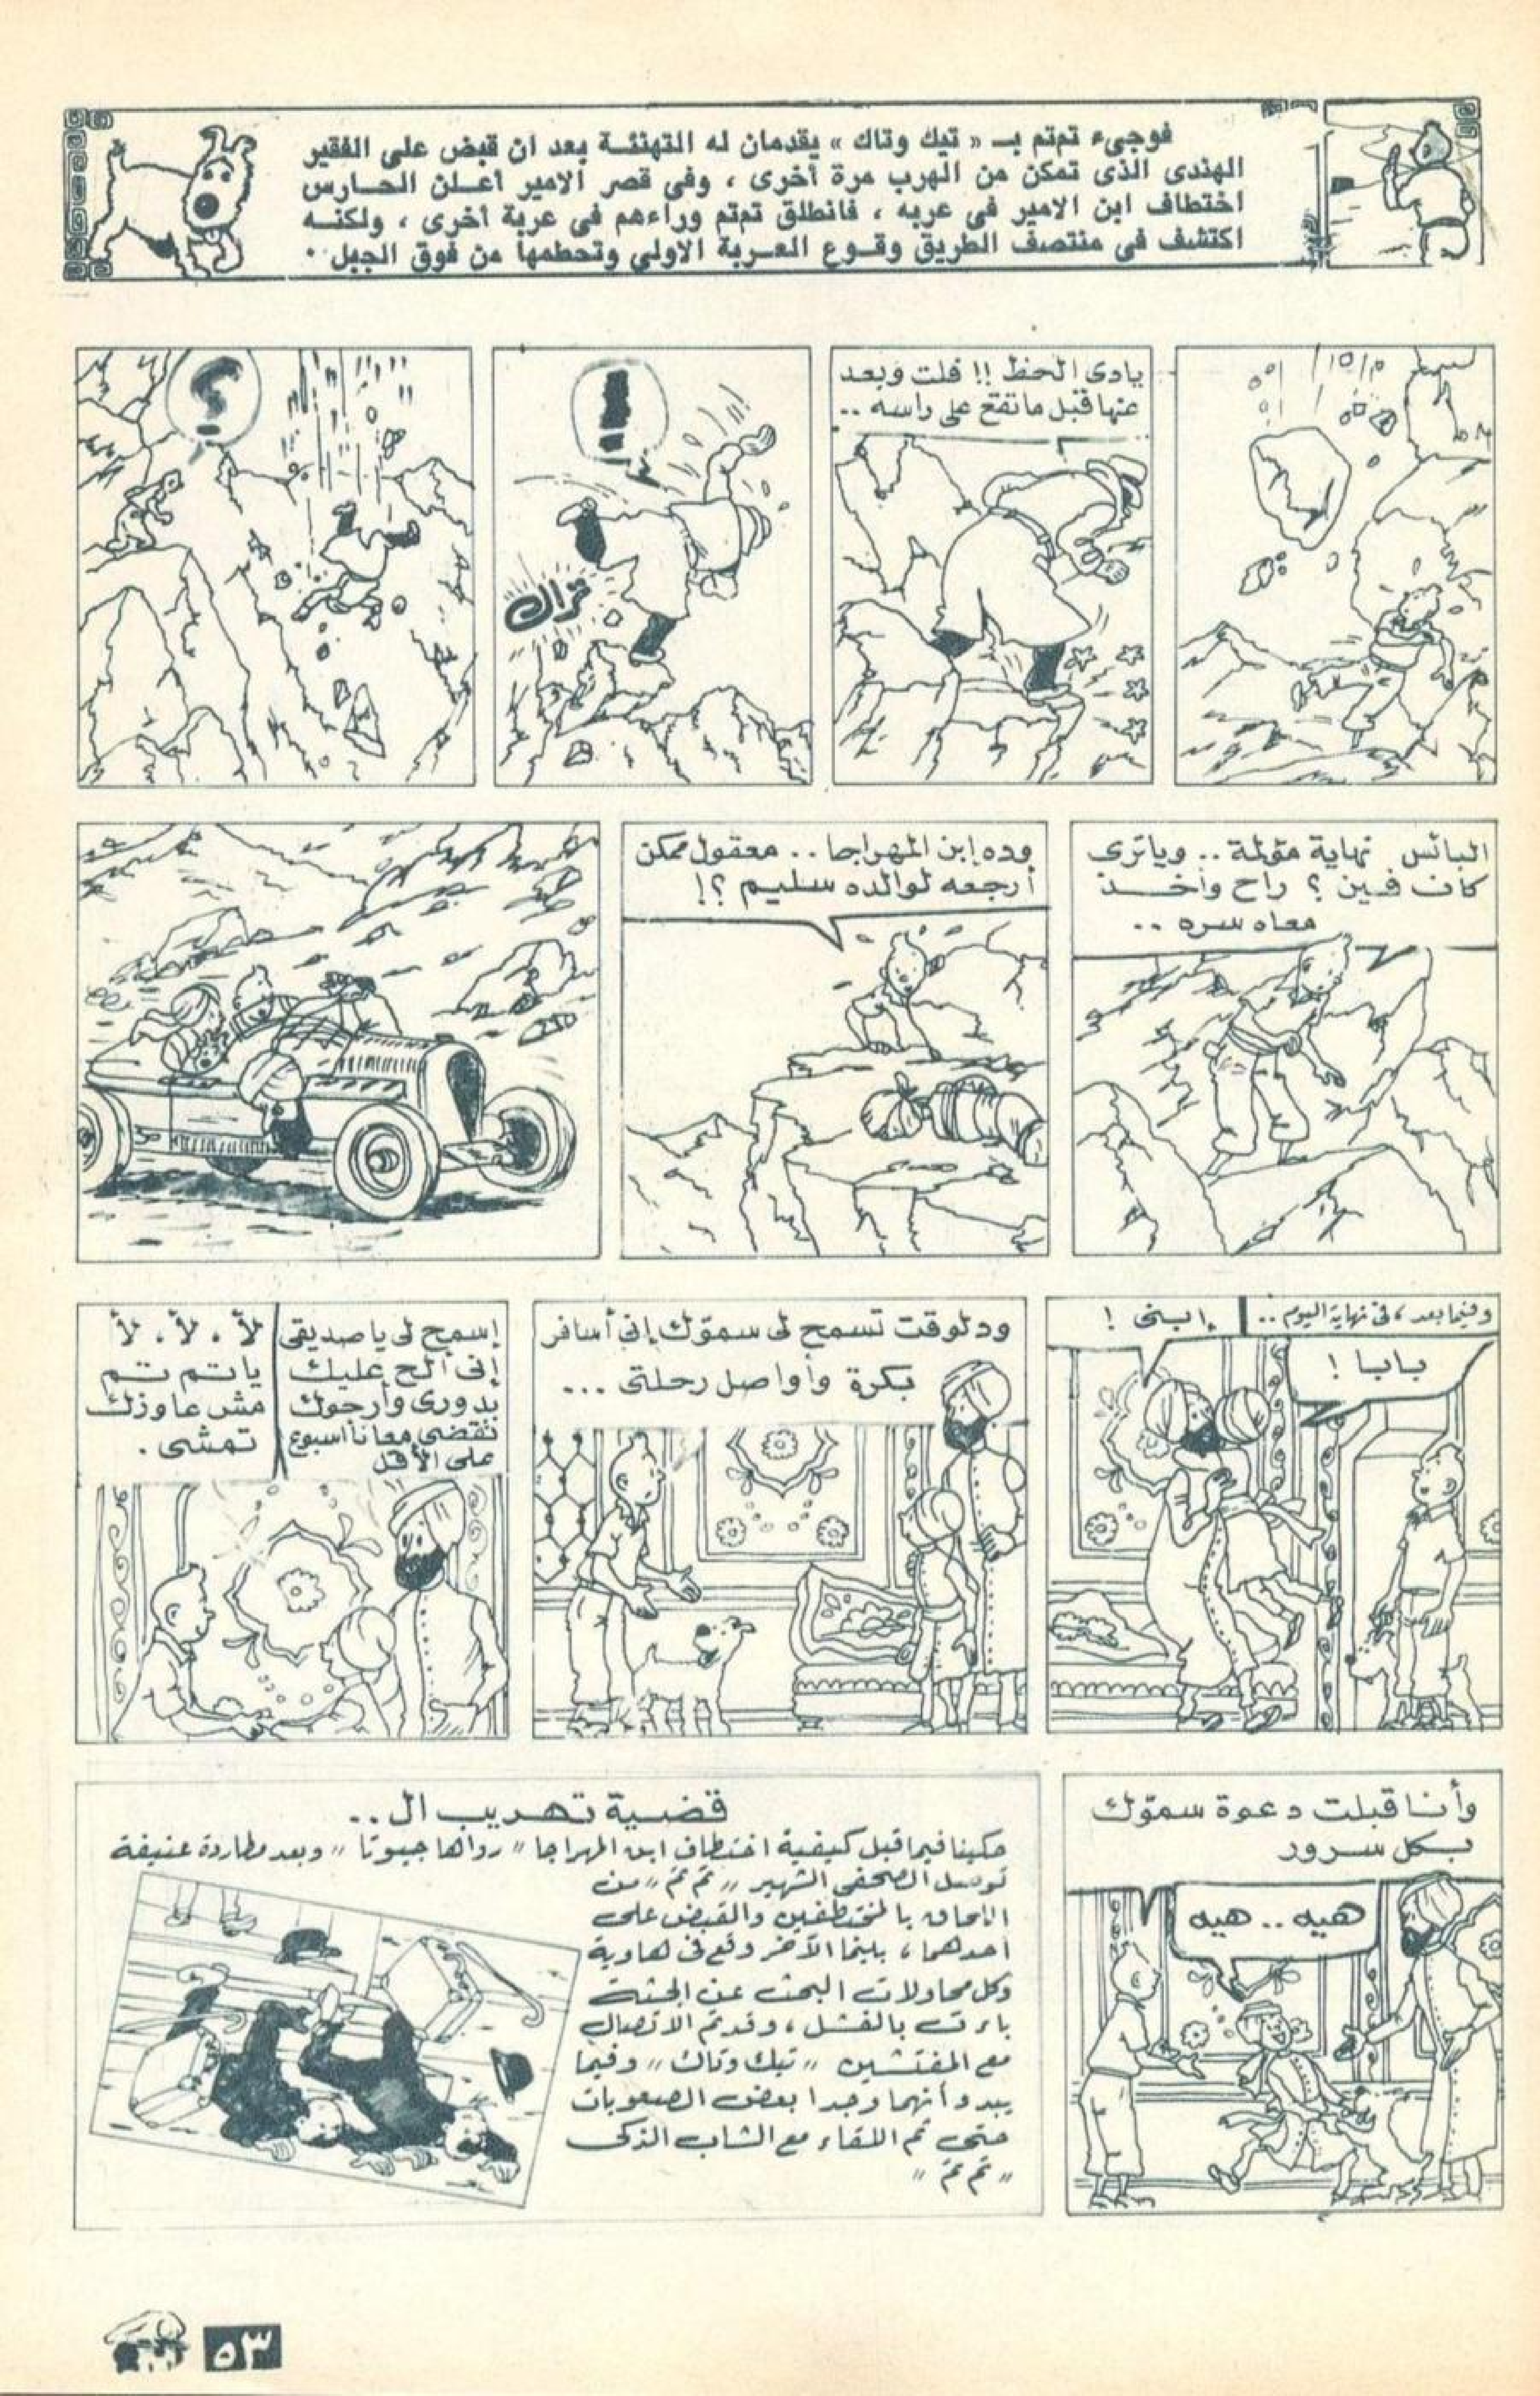 فوجىء تم‌تم بـ « تيك وتاك » يقدمان له التهنئة بعد ان قبض على الفقير
الهندى الذى تمكن من الهرب مرة أخرى ، وفى قصر الامير أعلن الحارس
اختطاف ابن الامير فى عربه ، فانطلق تم‌تم وراءهم فى عربة أخرى ، ولكنه
اكتشف فى منتصف الطريق وقوع العربة الاولى وتحطمها من فوق الجبل ..
يادى الحظ !! فلت وبعد
عنها قبل ماتقع على راسه ..
!
كراك
؟
البائس نهاية مؤلمة .. وياترى
كان فين ؟ راح وأخذ
معاه سره ..
وده إبن المهراجا .. معقول ممكن
أرجعه لوالده سليم ؟!
وفيما بعد ، فى نهاية اليوم ..
بابا !
إبنى !
ودلوقت تسمح لى سموّك إنى أسافر
بكرة وأواصل رحلتى ...
إسمح لى ياصديقى
إنى ألح عليك
بدورى وأرجوك
تقضى معانا اسبوع
على الأقل
لأ ، لأ ، لأ
ياتم تم
مش عاوزك
تمشى .
وأنا قبلت دعوة سموّك
بكل سرور
هيه .. هيه
قضية تهريب ال ..
حكينا فيما قبل كيفية اختطاف ابن المهراجا " رواهاجبوتا " وبعد مطاردة عنيفة
توصل الصحفى الشهير " تم تم " من
اللحاق بالمختطفين والقبض على
أحدهما ، بينما الآخر وقع فى هاوية
وكل محاولات البحث عن الجثة
باءت بالفشل ، وقد تم الاتصال
مع المفتشين " تيك وتاك " وفيما
يبدو أنهما وجدا بعض الصعوبات
حتى تم اللقاء مع الشاب الذكى
" تم تم "
٥٣